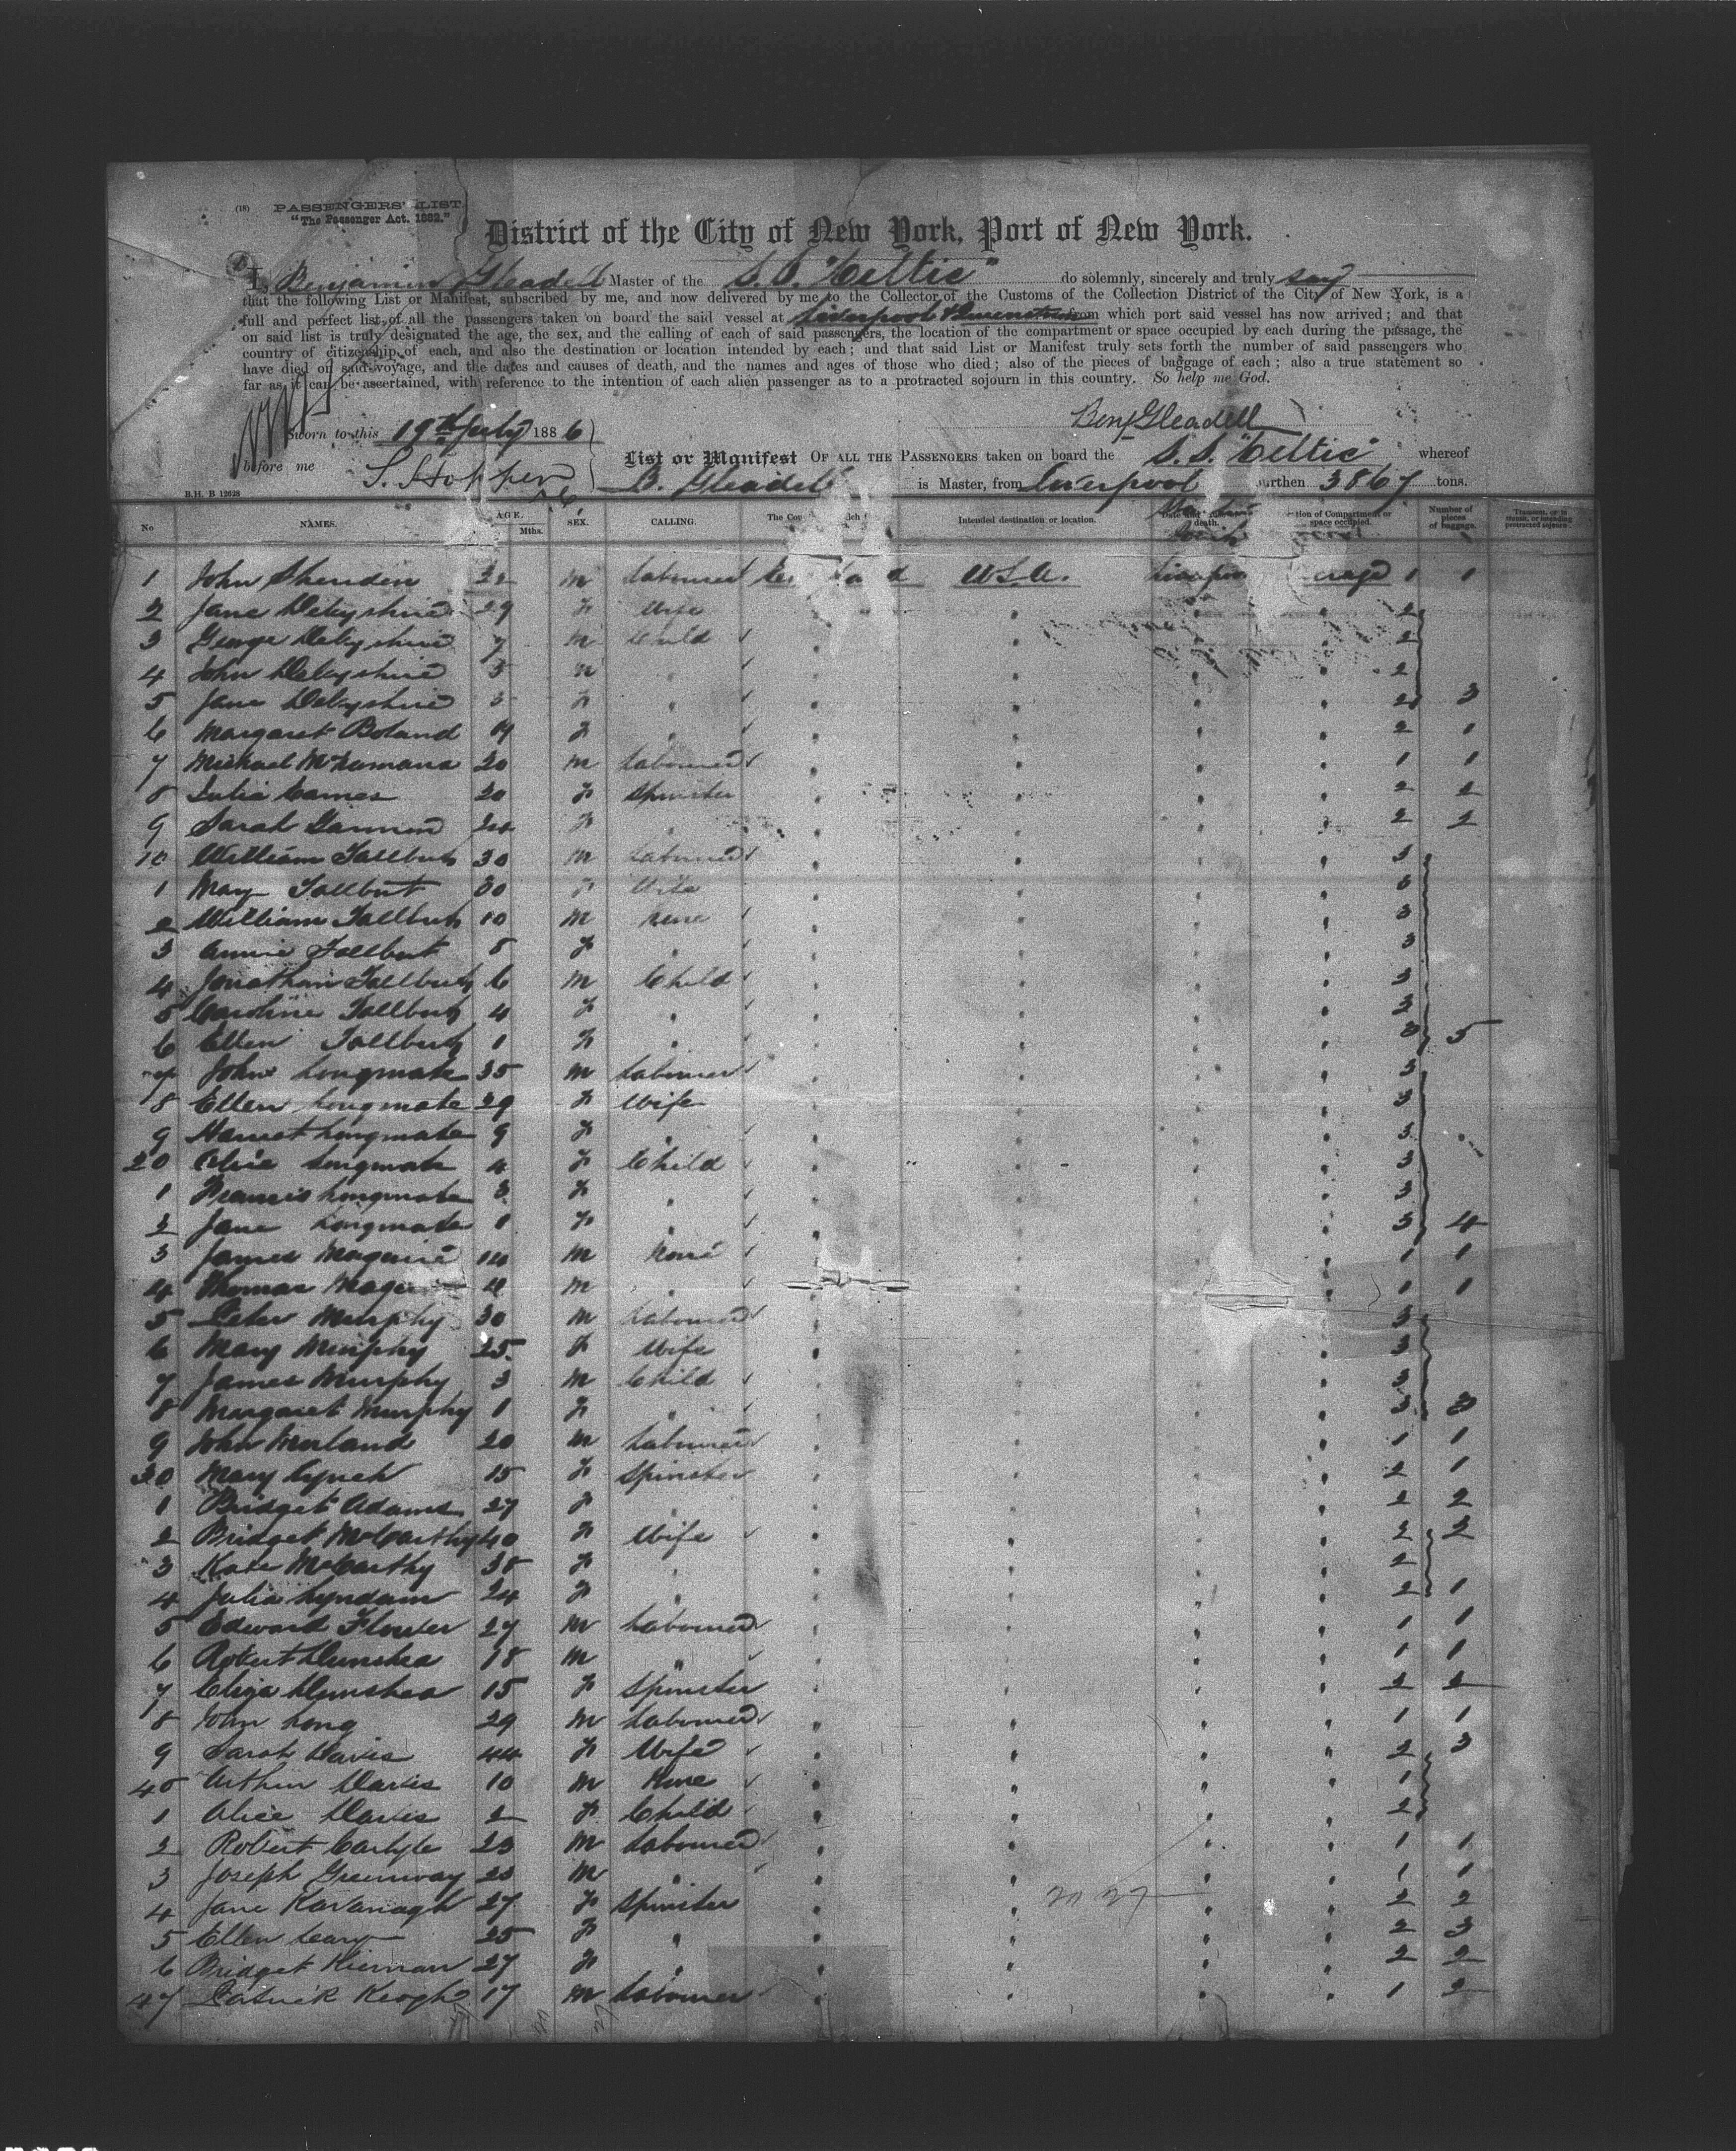 (18) PASSENGERS' LIST.
"The Passenger Act. 1882."
District of the City of New York, Port of New York.
I, Benjamin Gleadell Master of the S.S. "Celtic" do solemnly, sincerely and truly say
that the following List or Manifest, subscribed by me, and now delivered by me to the Collector of the Customs of the Collection District of the City of New York, is a
full and perfect list of all the passengers taken on board the said vessel at Liverpool & Queenstown from which port said vessel has now arrived; and that
on said list is truly designated the age, the sex, and the calling of each of said passengers, the location of the compartment or space occupied by each during the passage, the
country of citizenship of each, and also the destination or location intended by each; and that said List or Manifest truly sets forth the number of said passengers who
have died on said voyage, and the dates and causes of death, and the names and ages of those who died; also of the pieces of baggage of each; also a true statement so
far as it can be ascertained, with reference to the intention of each alien passenger as to a protracted sojourn in this country. So help me God.
Benj Gleadell
Sworn to this 19th July 1886
before me S. Hopper
List or Manifest OF ALL THE PASSENGERS taken on board the S.S. "Celtic" whereof
B. Gleadell is Master, from Liverpool burthen 3867 tons.
B.H. B 12628
No NAMES. AGE. Mths. SEX. CALLING. The Intended destination or location. death. Compartment or space occupied. Number of pieces of baggage. Transient, or in transit, or intending protracted sojourn
1 John Sheridan 22 M Labourer U.S.A. 1 1
2 Jane Debyshire 29 F Wife " " " " 2
3 George Debyshire 7 M Child " " " " 2
4 John Debyshire 5 M " " " " " 2
5 Jane Debyshire 3 F " " " " " 2 3
6 Margaret Boland 19 F " " " " " 2 1
7 Michael McNamara 20 M Labourer " " " " 1 1
8 Julia Cames 20 F Spinster " " " " 2 2
9 Sarah Gannon 24 F " " " " " 2 2
10 William Tallbut 30 M Labourer " " " " 3
1 May Tallbut 30 F Wife " " " " 3
2 William Tallbut 10 M None " " " " 3
3 Annie Tallbut 8 F " " " " " 3
4 Jonathan Tallbut 6 M Child " " " " 3
5 Caroline Tallbut 4 F " " " " " 3
6 Ellen Tallbut 1 F " " " " " 3 5
7 John Longmate 35 M Labourer " " " " 3
8 Ellen Longmate 29 F Wife " " " " 3
9 Harriet Longmate 9 F " " " " " 3
20 Alice Longmate 4 F Child " " " " 3
1 Francis Longmate 3 F " " " " " 3
2 Jane Longmate 1 F " " " " " 3 4
3 James Maguire 14 M None " " " " 1 1
4 Thomas M " " " " " 1 1
5 Peter Murphy 30 M Labourer " " " " 3
6 Mary Murphy 25 F Wife " " " " 3
7 James Murphy 3 M Child " " " " 3
8 Margaret Murphy 1 F " " " " " 3 3
9 John 20 M Labourer " " " " 1 1
30 Mary Lynch 15 F Spinster " " " " 2 1
1 Bridget Adams 27 F " " " " " 2 2
2 Bridget McCarthy 40 F Wife " " " " 2 2
3 Kate McCarthy 38 F " " " " " 2
4 Julia Lyndam 24 F " " " " " 2 1
5 Edward Flower 27 M Labourer " " " " 1 1
6 Robert Dunshea 18 M " " " " " 1 1
7 Eliza Dunshea 15 F Spinster " " " " 2 2
8 John Long 29 M Labourer " " " " 1 1
9 Sarah Davis 44 F Wife " " " " 2 3
40 Arthur Davis 10 M None " " " " 1
1 Alice Davis 2 F Child " " " " 2
2 Robert Carlyle 23 M Labourer " " " " 1 1
3 Joseph Greenway 20 M " " " " " 1 1
4 Jane Kavanagh 27 F Spinster " " " " 2 2
5 Ellen Leary 25 F " " " " " 2 3
6 Bridget Kiernan 27 F " " " " " 2 2
47 Patrick Keogh 17 M Labourer " " " " 1 2